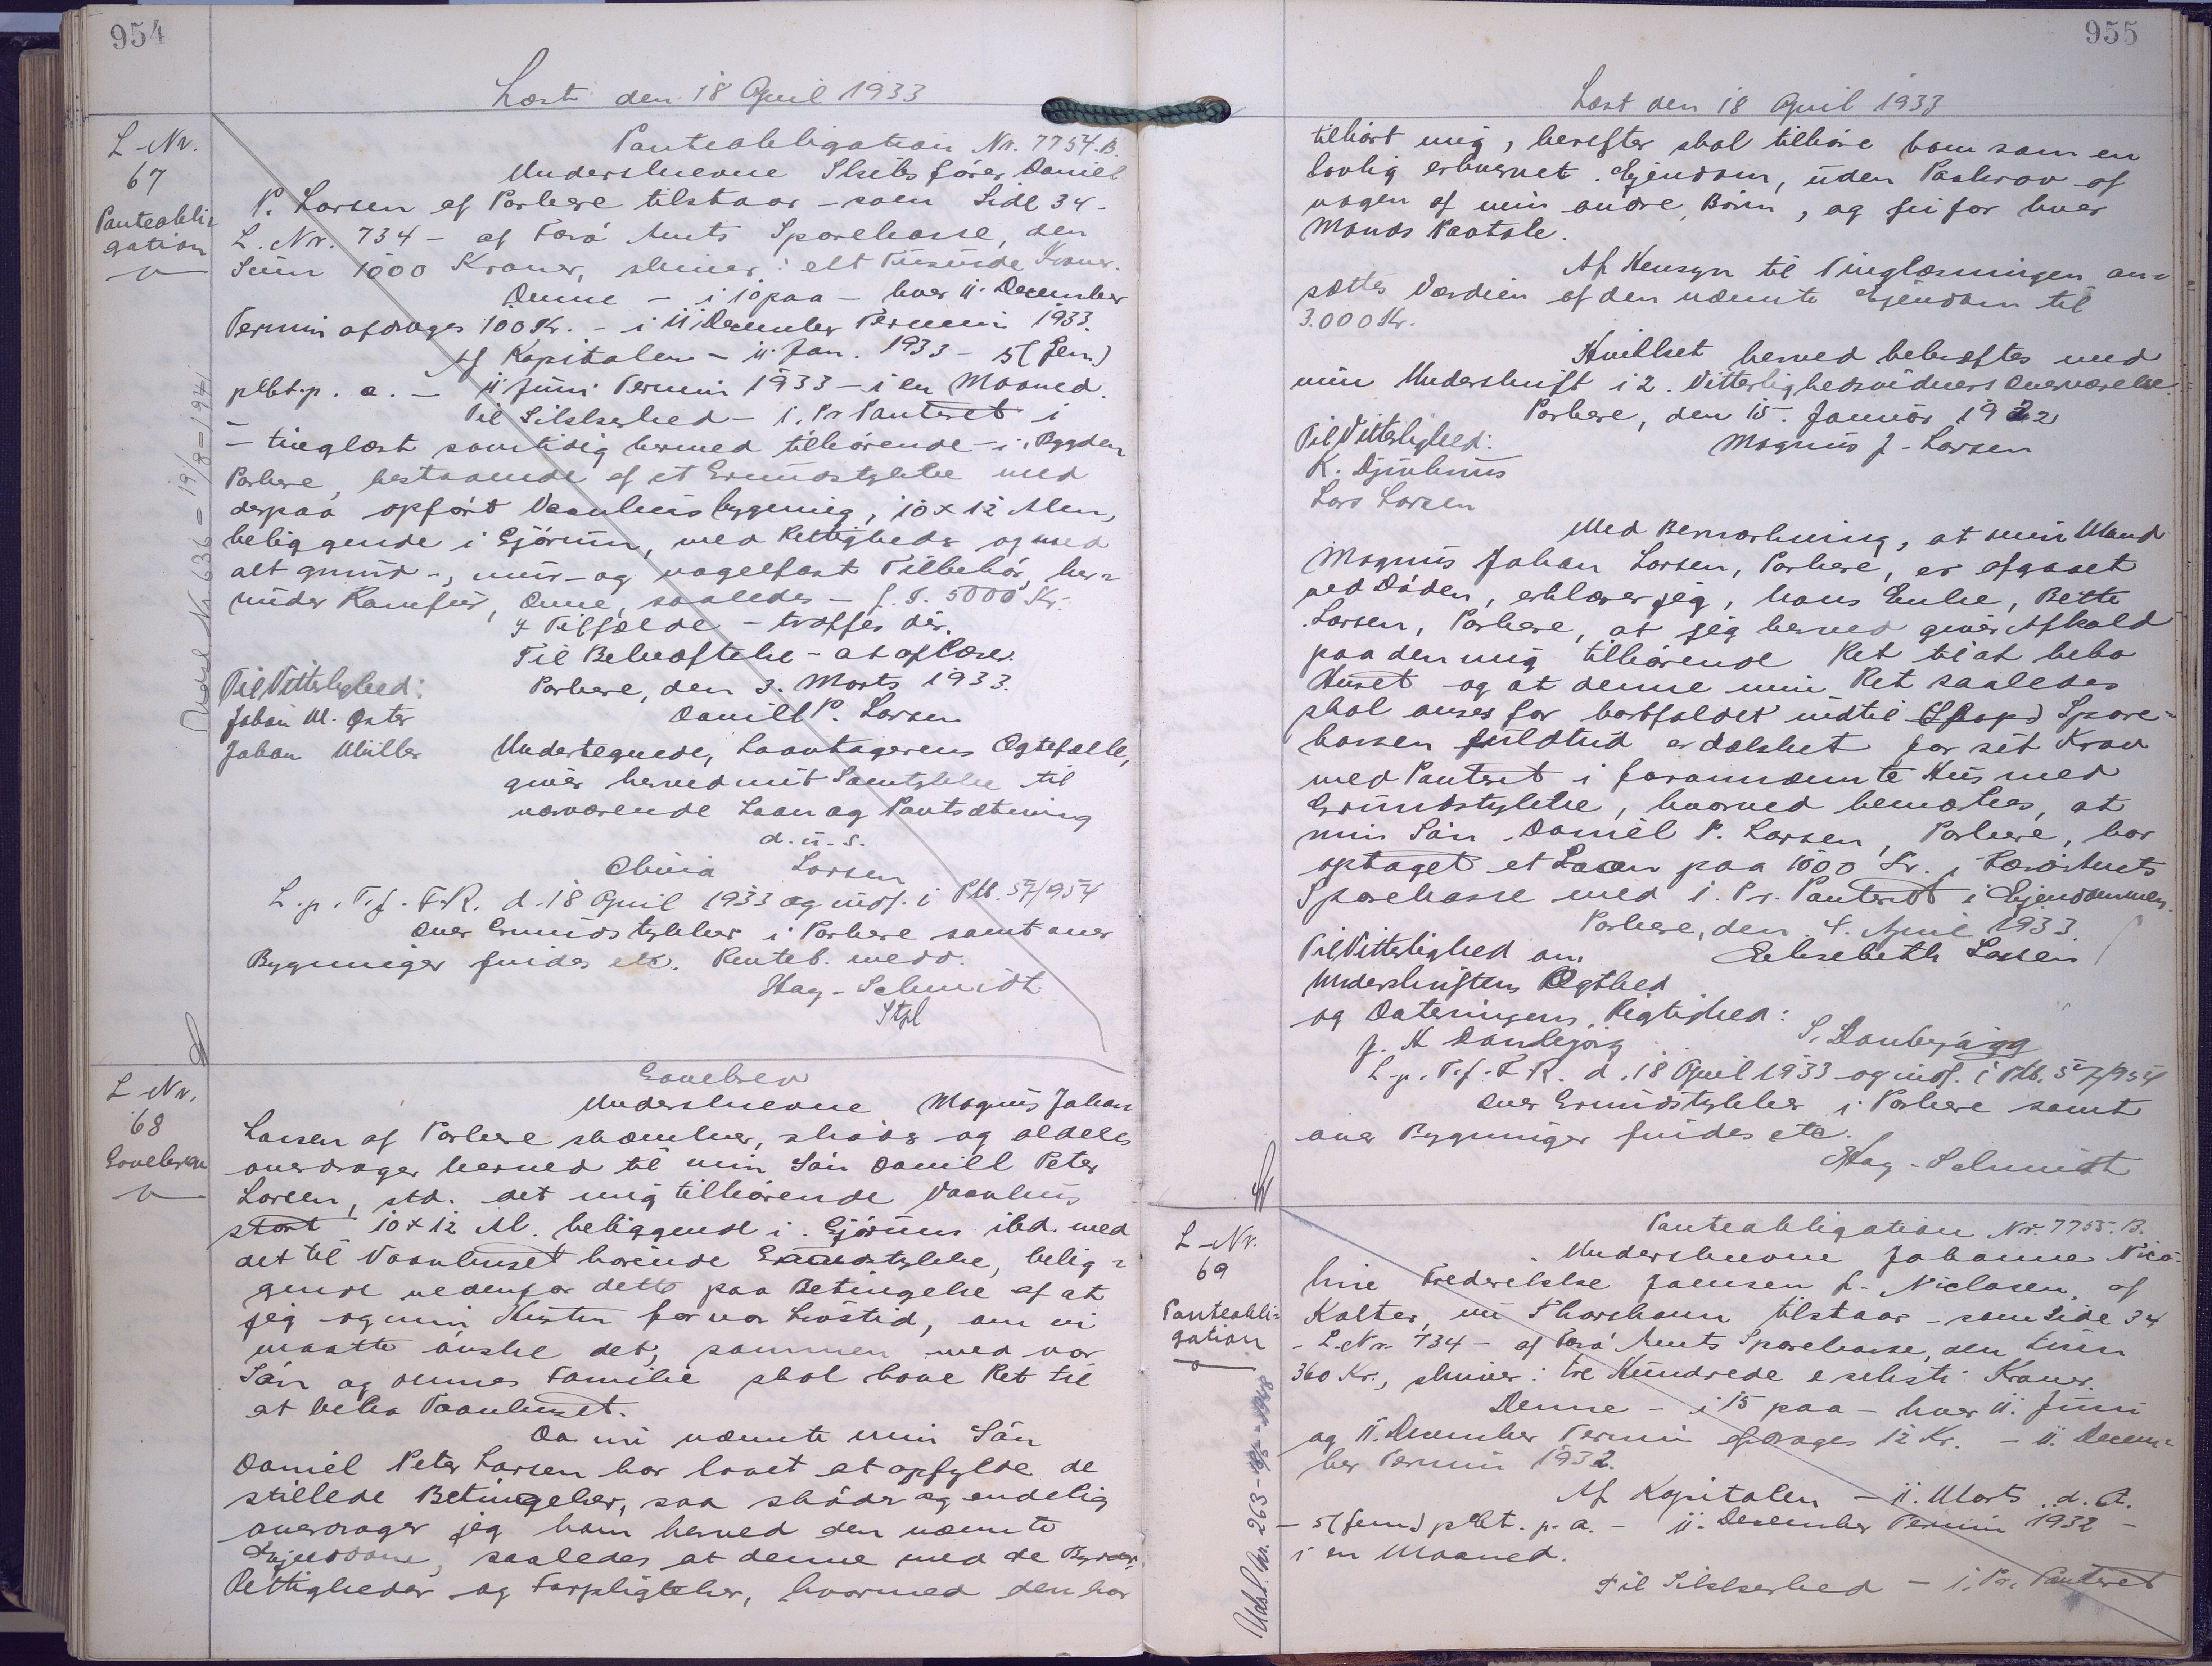 954
Læst den 18 April 1933
L-Nr.
67
Panteobli-
gation
Panteobligation Nr. 7754.B.
Underskrevne Skibsfører Daniel
P. Larsen af Porkere tilstaar - som Side 34 -
L. Nr. 734 - af Færø Amts Sparekasse, den
Sum 1000 Kroner, skriver: ett Tusinde Kroner.
Denne - i 10 paa - hver 11. December
Termin afdrages 100 Kr. - i 11. December Termin 1933.
Af Kapitalen - 11. Jan. 1933 - 5 (fem)
pCt. p. a. - 11 Juni Termin 1933 - i en Maaned.
Til Sikkerhed - 1. Pr Panteret i
- tinglæst samtidig hermed tilhørende - i Bygden
Porkere, bestaaende af et Grundstykke med
derpaa opført Vaanhusbygning, 10 x 12 Alen,
beliggende i Gjørum, med Rettigheder og med
alt grund-, mur- og nagelfast Tilbehør, her-
under Kamfur, Denne, saaledes - f. T. 5000 Kr.
I Tilfælde - træffes der.
Til Bekræftelse - at aflæses.
Til Vitterlighed: Porkere, den 3. Marts 1933.
Johan M. Øster Daniell P. Larsen
Johan Müller Undertegnede, Laantagerens Ægtefælle,
giver herved mit Samtykke til
nærværende Laan og Pantsætning
d. u. s.
Olivia Larsen
L. p. T. f. F. R. d. 18 April 1933 og indf. i Ptb. 57/954
Over Grundstykker i Porkere samt over
Bygninger findes etc. Renteb. medd.
Hag-Schmidt
Stpl
Udsl Nr 636 - 19/8-194
L Nr.
68
Gavebrev
Gavebrev
Underskrevne Magnus Johan
Larsen af Porkere skænker, skøder og aldeles
overdrager herved til min Søn Daniell Peter
Larsen, std. det mig tilhørende Vaanhus
stort 10 x 12 Al. beliggende i Gjørum ibd. med
det til Vaanhuset hørende Grundstykke, belig-
gende nedenfor dette paa Betingelse af at
jeg og min Hustru for vor Livstid, om vi
maatte ønske det, sammen med vor
Søn og dennes Familie skal have Ret til
at bebo Vaanhuset.
Da nu nævnte min Søn
Daniel Peter Larsen har lovet at opfylde de
stillede Betingelser, saa skøder og endelig
overdrager jeg ham herved den nævnte
Ejendom, saaledes at denne med de Byrder,
Rettigheder og Forpligtelser, hvormed den har
955
Læst den 18 April 1933
tilhørt mig, herefter skal tilhøre ham som en
lovlig erhvervet Ejendom, uden Paakrav af
nogen af min andre Børn, og fri for hver
Mands Paatale.
Af Hensyn til Tinglæsningen an-
sættes Værdien af den nævnte Ejendom til
3.000 Kr.
Hvilket herved bekræftes med
min Underskrift i 2. Vitterlighedsvidners Overværelse.
Porkere, den 15. Januar 1922
Til Vitterlighed: Magnus J. Larsen
K. Djurhuus
Lars Larsen
Med Bemærkning, at min Mand
Magnus Johan Larsen, Porkere, er afgaaet
ved Døden, erklærer jeg, hans Enke, Bette
Larsen, Porkere, at jeg herved giver Afkald
paa den mig tilhørende Ret til at bebo
Huset og at denne min Ret saaledes
skal anses for bortfaldet indtil Spare-
kassen fuldtud er dækket for sit Krav
med Panteret i forannævnte Hus med
Grundstykke, hvorved bemærkes, at
min Søn Daniel P. Larsen, Porkere, har
optaget et Laan paa 1000 Kr. i Færø Amts
Sparekasse med 1. Pr. Panteret i Ejendommen.
Porkere, den 4. April 1933.
Til Vitterlighed om Elisebeth Larsen
Underskriftens Ægthed
og Dateringens Rigtighed:
J. H Danbjørg S. Danbjørgg
L. p. T. f. F. R. d. 18 April 1933 og indf. i Ptb. 57/954
Over Grundstykker i Porkere samt
over Bygninger findes etc.
Hag-Schmidt
L-Nr.
69
Panteobli-
gation
Panteobligation Nr. 7755.B.
Underskrevne Johanne Nico-
line Frederikke Joensen f. Niclasen, af
Kolter, nu Thorshavn tilstaar - som Side 34
- L. Nr. 734 - af Færø Amts Sparekasse, den Sum
360 Kr., skriver: tre Hundrede e seksti Kroner.
Denne - i 15 paa - hver 11. Juni
og 11. December Termin afdrages 12 Kr. - 11. Decem-
ber Termin 1932.
Af Kapitalen - 11. Marts d. A.
- 5 (fem) pCt. p. a. - 11. December Termin 1932 -
i en Maaned.
Til Sikkerhed - 1. Pr. Panteret
Udsl. Nr. 263 - 1948